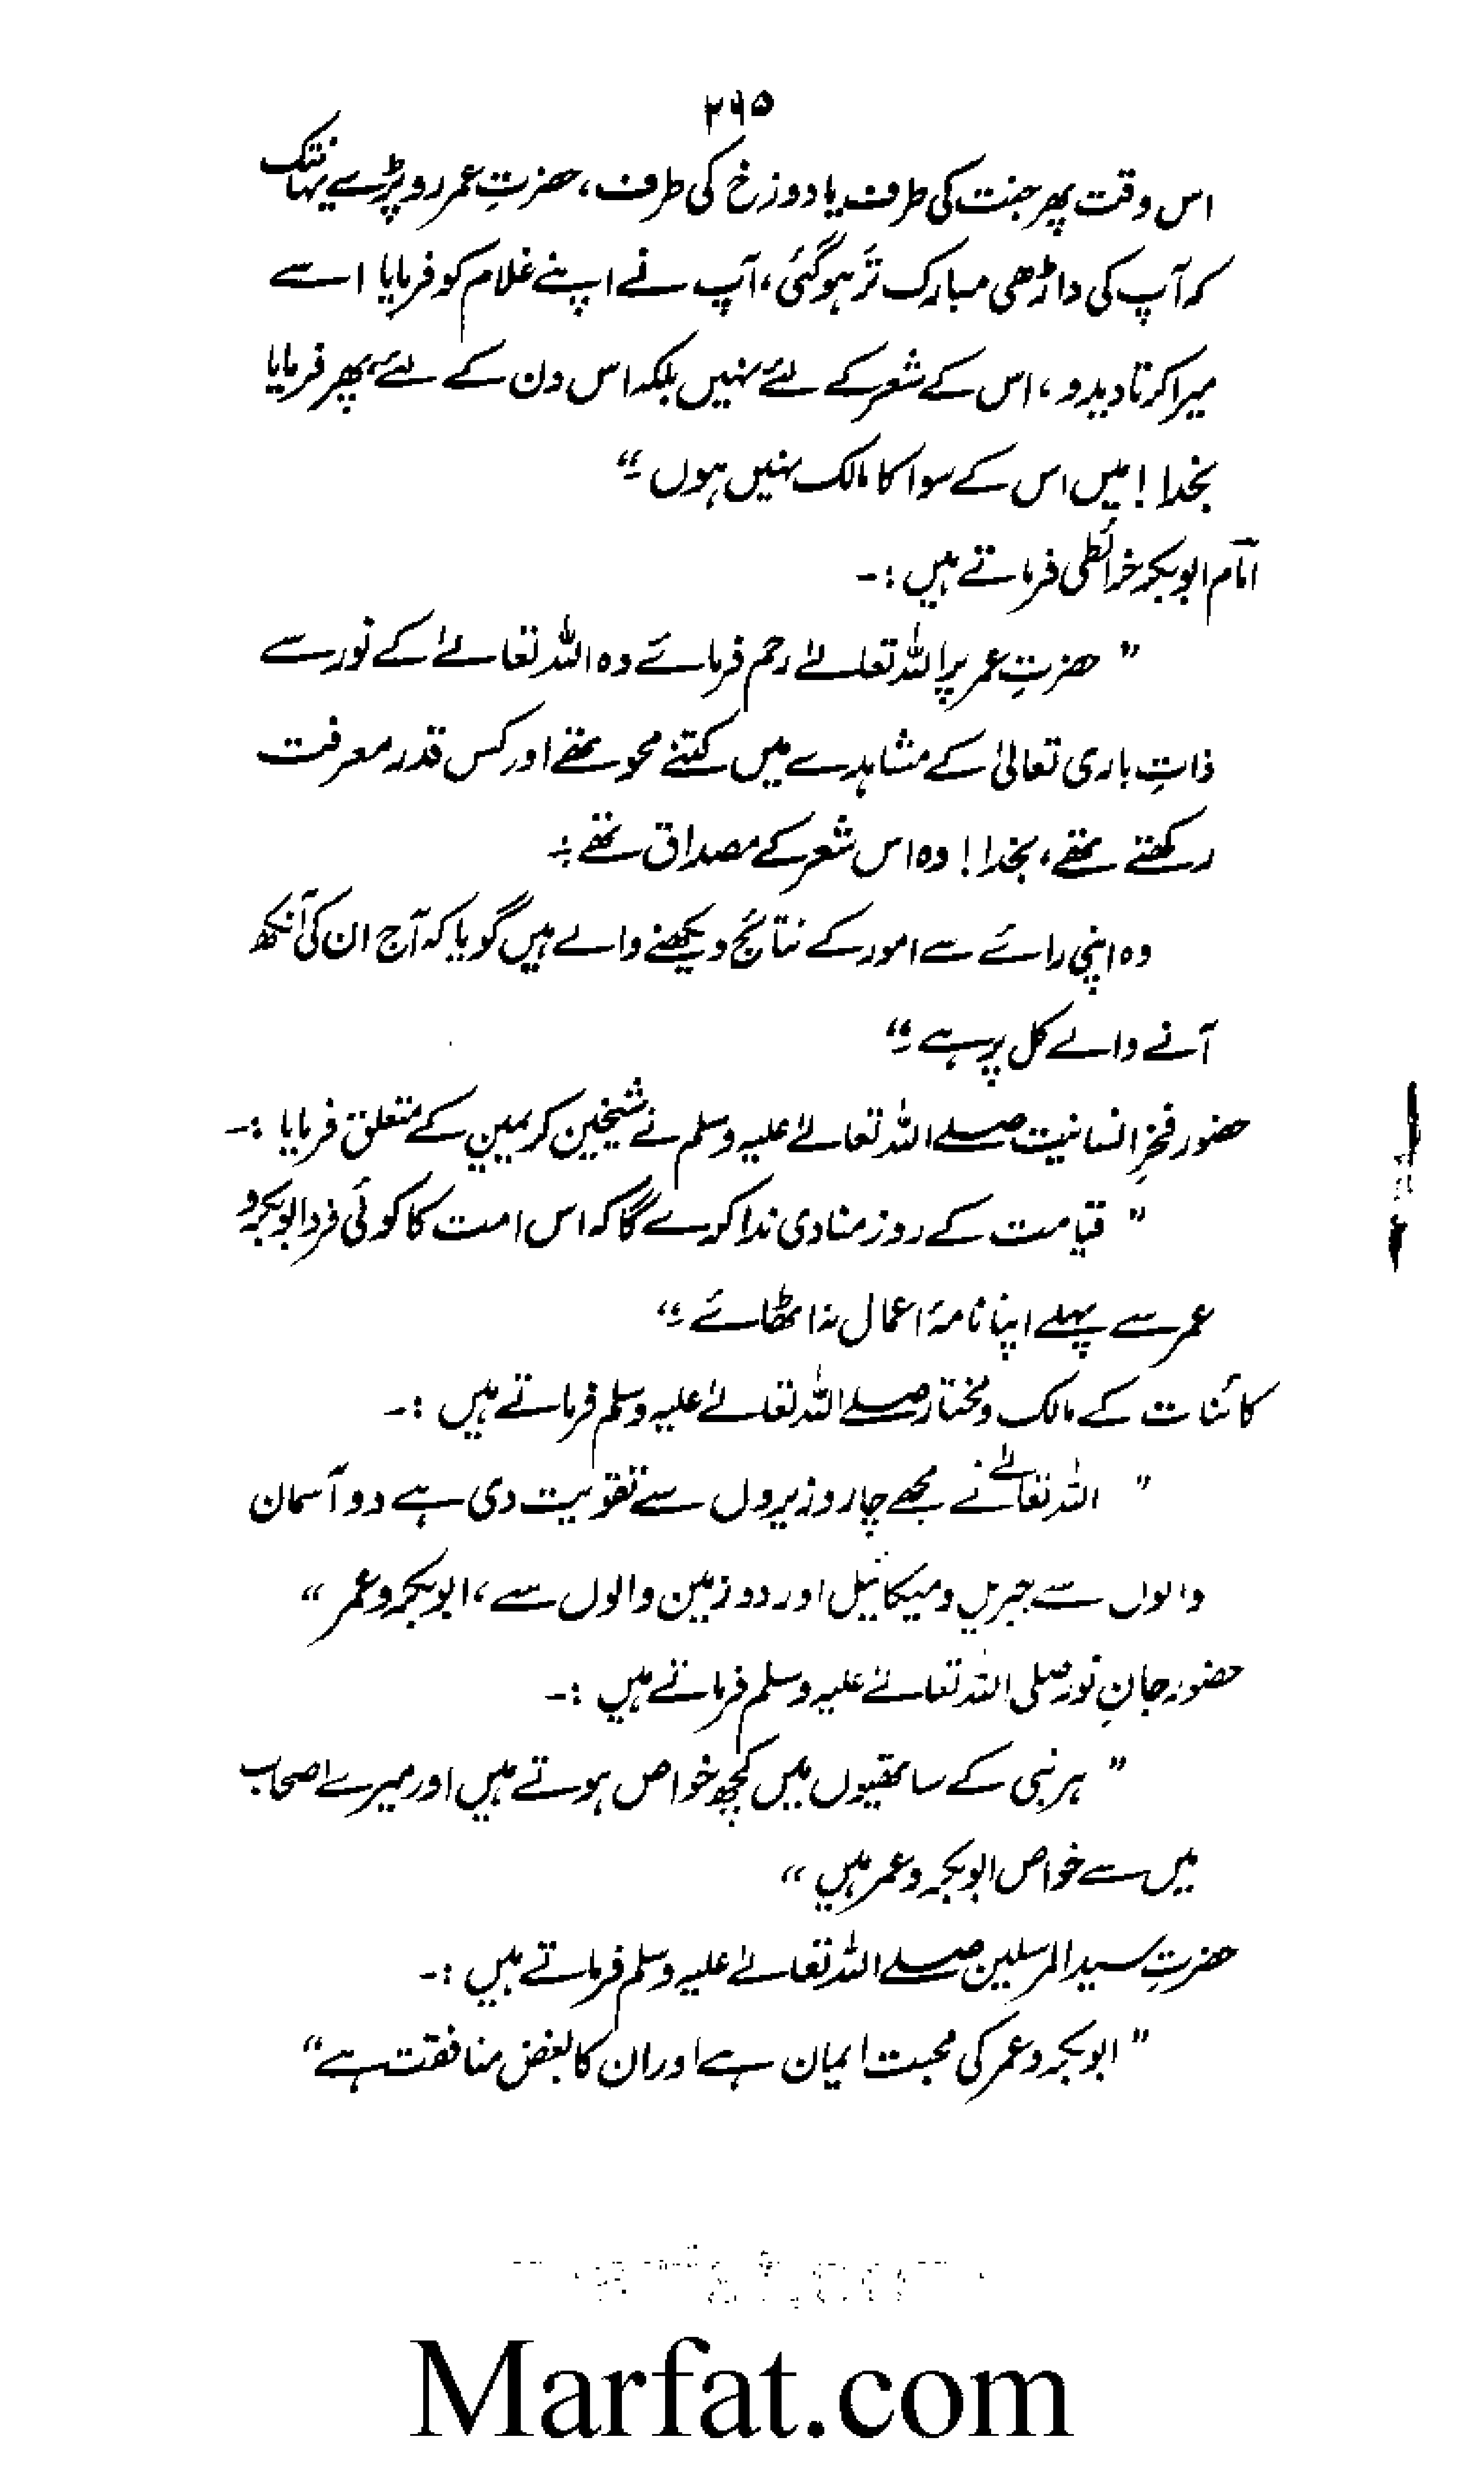 ۲۶۵
اس وقت پھر جنت کی طرف یا دوزخ کی طرف، حضرتِ عمر رو پڑے یہانتک
کہ آپ کی داڑھی مبارک تر ہوگئی، آپ نے اپنے غلام کو فرمایا اسے
میرا کرتا دیدو، اس کے شعر کے لئے نہیں بلکہ اس دن کے لئے، پھر فرمایا
بخدا! میں اس کے سوا کا مالک نہیں ہوں۔“
امام ابوبکر خرائطی فرماتے ہیں :-
” حضرتِ عمر پر اللہ تعالےٰ رحم فرمائے وہ اللہ تعالےٰ کے نور سے
ذاتِ باری تعالیٰ کے مشاہدے میں کتنے محو تھے اور کس قدر معرفت
رکھتے تھے، بخدا! وہ اس شعر کے مصداق تھے :
وہ اپنی رائے سے امور کے نتائج دیکھنے والے ہیں گویا کہ آج ان کی آنکھ
آنے والے کل پر ہے۔“
حضور فخرِ انسانیت صلے اللہ تعالےٰ علیہ وسلم نے شیخین کریمین کے متعلق فرمایا :-
” قیامت کے روز منادی ندا کرے گا کہ اس امت کا کوئی فرد ابوبکر و
عمر سے پہلے اپنا نامۂ اعمال نہ اٹھائے۔“
کائنات کے مالک و مختار صلے اللہ تعالےٰ علیہ وسلم فرماتے ہیں :-
” اللہ تعالےٰ نے مجھے چار وزیروں سے تقویت دی ہے دو آسمان
والوں سے جبریل و میکائیل اور دو زمین والوں سے، ابوبکر و عمر“
حضور جانِ نور صلی اللہ تعالےٰ علیہ وسلم فرماتے ہیں :-
” ہر نبی کے ساتھیوں میں کچھ خواص ہوتے ہیں اور میرے اصحاب
میں سے خواص ابوبکر و عمر ہیں“
حضرتِ سید المرسلین صلے اللہ تعالےٰ علیہ وسلم فرماتے ہیں :-
” ابوبکر و عمر کی محبت ایمان ہے اور ان کا بغض منافقت ہے“
Marfat.com